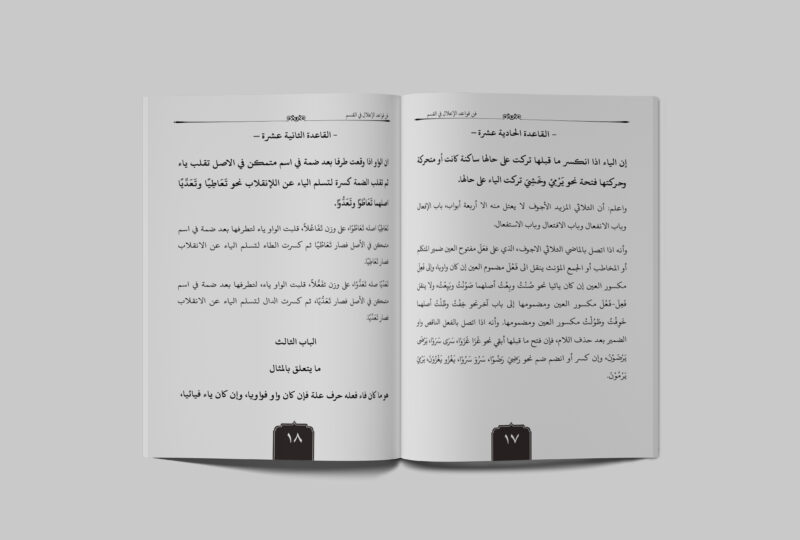 فن قواعد الإعلال في القسم
- القاعدة الحادية عشرة -
إن الياء اذا انكسر ما قبلها تركت على حالها ساكنة كانت أو متحركة
وحركتها فتحة نحو يَرْمِيْ وخَشِيَ تركت الياء على حالها.
واعلم: أن الثلاثي المزيد الأجوف لا يعتل منه الا أربعة أبواب، باب الإفعال
وباب الانفعال وباب الافتعال وباب الاستفعال.
وأنه اذا اتصل بالماضي الثلاثي الاجوف، الذي على فعَل مفتوح العين ضمير المتكلم
أو المخاطب أو الجمع المؤنث ينقل الى فَعُلَ مضموم العين إن كان واويا، وإلى فَعِلَ
مكسور العين إن كان يائيا نحو صُنْتُ وبِعْتُ أصلهما صَوُنْتُ وبَيِعْتُ، ولا ينقل
فعِل-فعُل مكسور العين ومضمومها إلى باب آخر نحو خِفْتُ وطُلْتُ أصلهما
خَوِفْتُ وطَوُلْتُ مكسور العين ومضمومها. وأنه اذا اتصل بالفعل الناقص واو
الضمير بعد حذف اللام، فإن فتح ما قبلها أبقي نحو غَزَا غَزَوْا، سَرَى سَرَوْا، يَرْضَى
يَرْضَوْنَ، وإن كسر أو انضم ضم نحو رَضِيَ رَضُوْا، سَرُوَ سَرُوْا، يَغْزُو يَغْزُوْنَ، يَرْمِيْ
يَرْمُوْنَ.
١٧
فن قواعد الإعلال في القسم
- القاعدة الثانية عشرة -
ان الواو اذا وقعت طرفا بعد ضمة في اسم متمكن في الاصل تقلب ياء
ثم تقلب الضمة كسرة لتسلم الياء عن اللإنقلاب نحو تَعَاطِيًا وتَعَدِّيًا
اصلهما تَعَاطُوًا وتَعَدُّوًا.
تَعَاطِيًا اصله تَعَاطُوًا، على وزن تَفَاعُلًا، قلبت الواو ياء لتطرفها بعد ضمة في اسم
متمكن في الأصل فصار تَعَاطُيًا ثم كسرت الطاء لتسلم الياء عن الانقلاب
فصار تَعَاطِيًا.
تَعَدِّيًا اصله تَعَدُّوًا، على وزن تفَعُّلًا، قلبت الواو ياء، لتطرفها بعد ضمة في اسم
متمكن في الأصل فصار تَعَدُّيًا، ثم كسرت الدال لتسلم الياء عن الانقلاب
فصار تَعَدِّيًا.
الباب الثالث
ما يتعلق بالمثال
هو ما كان فاء فعله حرف علة فإن كان واو فواويا، وإن كان ياء فيائيا،
١٨